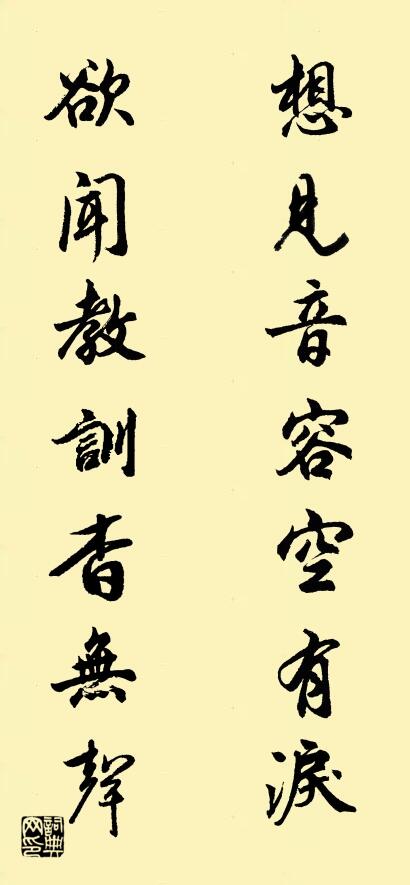 想見音容空有淚
欲聞教訓杳無聲
詞典網印